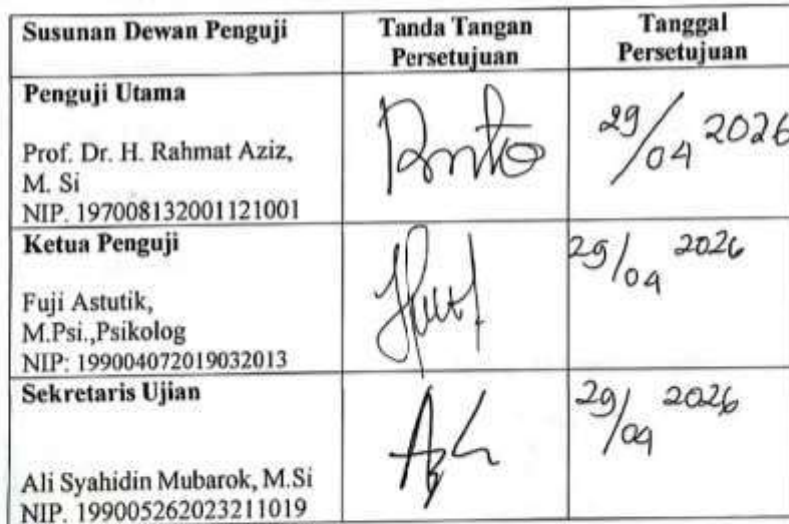 Susunan Dewan Penguji
Tanda Tangan
Persetujuan
Tanggal
Persetujuan
Penguji Utama
Prof. Dr. H. Rahmat Aziz,
M. Si
NIP. 197008132001121001
29/04 2026
Ketua Penguji
Fuji Astutik,
M.Psi.,Psikolog
NIP: 199004072019032013
29/04 2026
Sekretaris Ujian
Ali Syahidin Mubarok, M.Si
NIP. 199005262023211019
29/04 2026